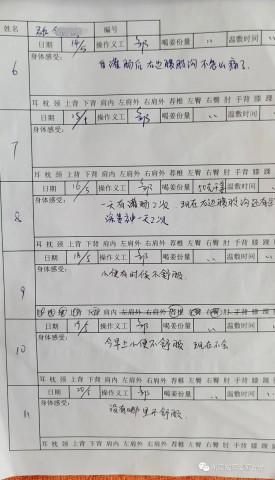 姓名 编号
6 日期 14/5 操作义工 郭 喝姜份量 〃 温敷时间 〃
身体感受:
自灌肠后右边腹股沟不怎么痛了.
耳 枕 颈 上背 下背 肩内 左肩外 右肩外 荐椎 左臀 右臀 肘 手背 膝 踝
7 日期 15/5 操作义工 郭 喝姜份量 〃 温敷时间 〃
身体感受:
耳 枕 颈 上背 下背 肩内 左肩外 右肩外 荐椎 左臀 右臀 肘 手背 膝 踝
8 日期 16/5 操作义工 郭 喝姜份量 温敷时间
身体感受:
一天有灌肠2次 现在右边腹股沟还有
一天2次
耳 枕 颈 上背 下背 肩内 左肩外 右肩外 荐椎 左臀 右臀 肘 手背 膝 踝
9 日期 18/5 操作义工 郭 喝姜份量 〃 温敷时间 〃
身体感受:
小便有时候不舒服.
肩内 左肩外 右肩外 右臀 肘 手背 膝 踝
10 日期 19/5 操作义工 郭 喝姜份量 〃 温敷时间 〃
身体感受:
今早上小便不舒服 现在不会
耳 枕 颈 上背 下背 肩内 左肩外 右肩外 荐椎 左臀 右臀 肘 手背 膝 踝
11 日期 20/5 操作义工 郭 喝姜份量 〃 温敷时间 〃
身体感受:
没有哪里不舒服.
耳 枕 颈 上背 下背 肩内 左肩外 右肩外 荐椎 左臀 右臀 肘 手背 膝